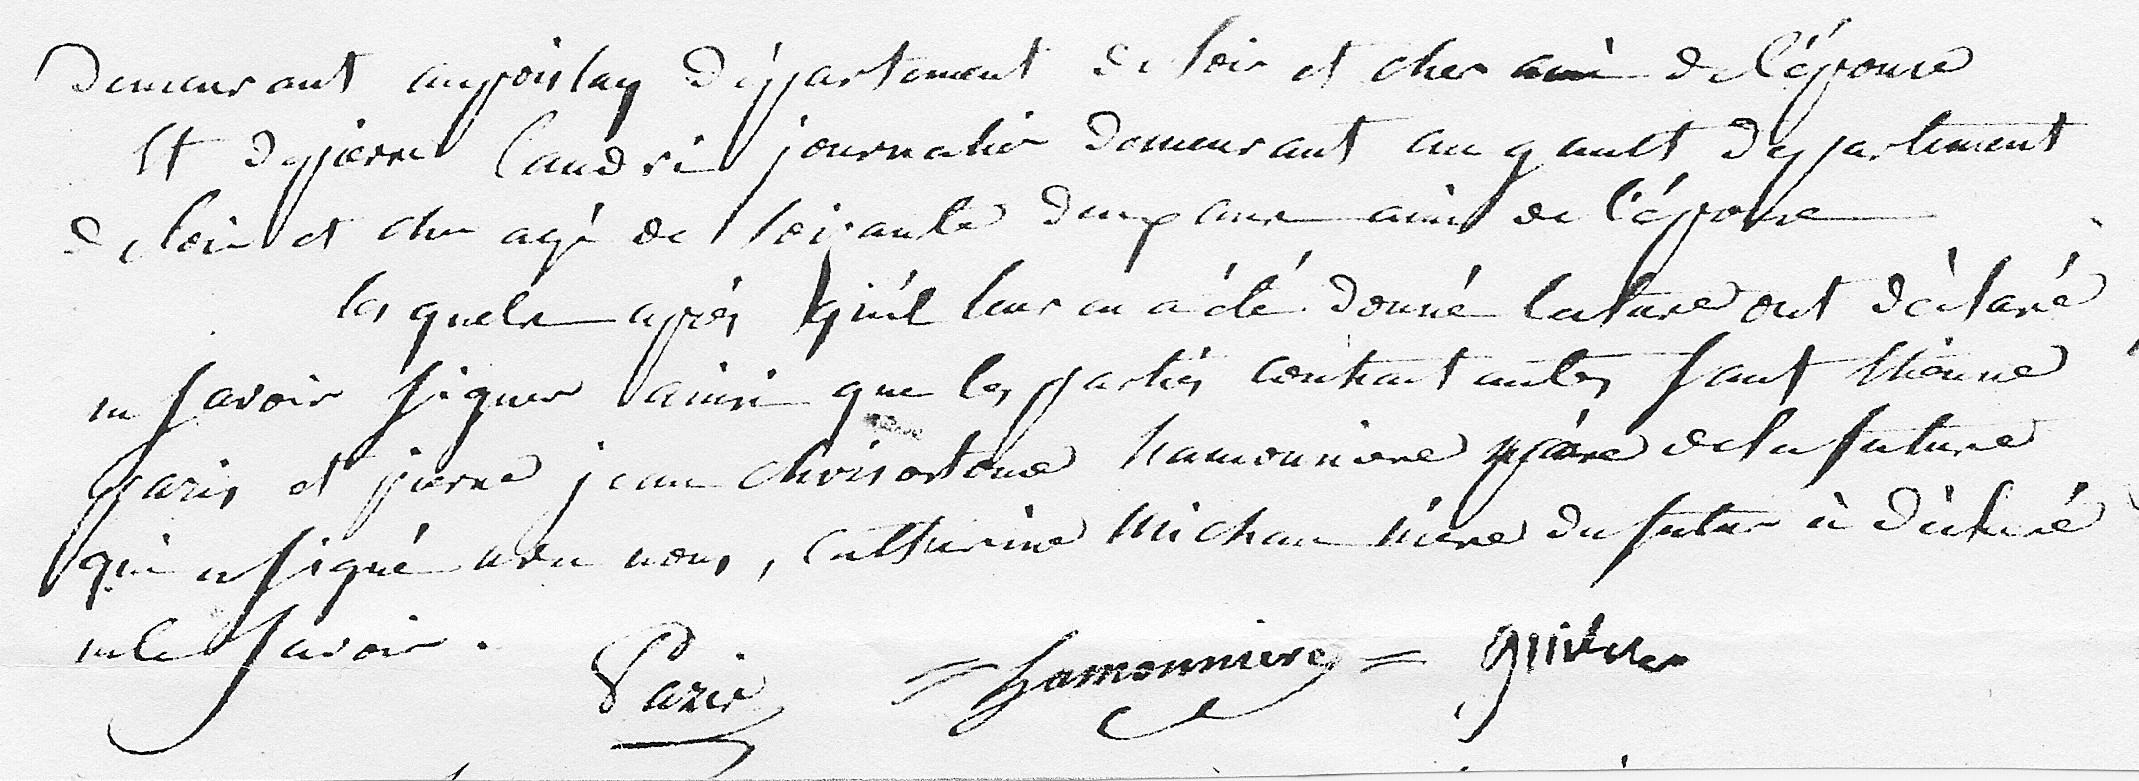 demeurant au poislay département de loir et cher ami de l'épouse
Et de pierre Landri journalier demeurant au gault département
de loir et cher agé de soixante deux ans ami de l'épouse
les quels après qu'il leur en a été donné lecture ont déclaré
ne savoir signer ainsi que les parties contractantes sauf Etienne
paris et pierre jean chrisostome hamonniere père de la future
qui a signé avec nous, catherine Michau mère du futur à déclaré
ne le savoir.
Paris = hamonniere =